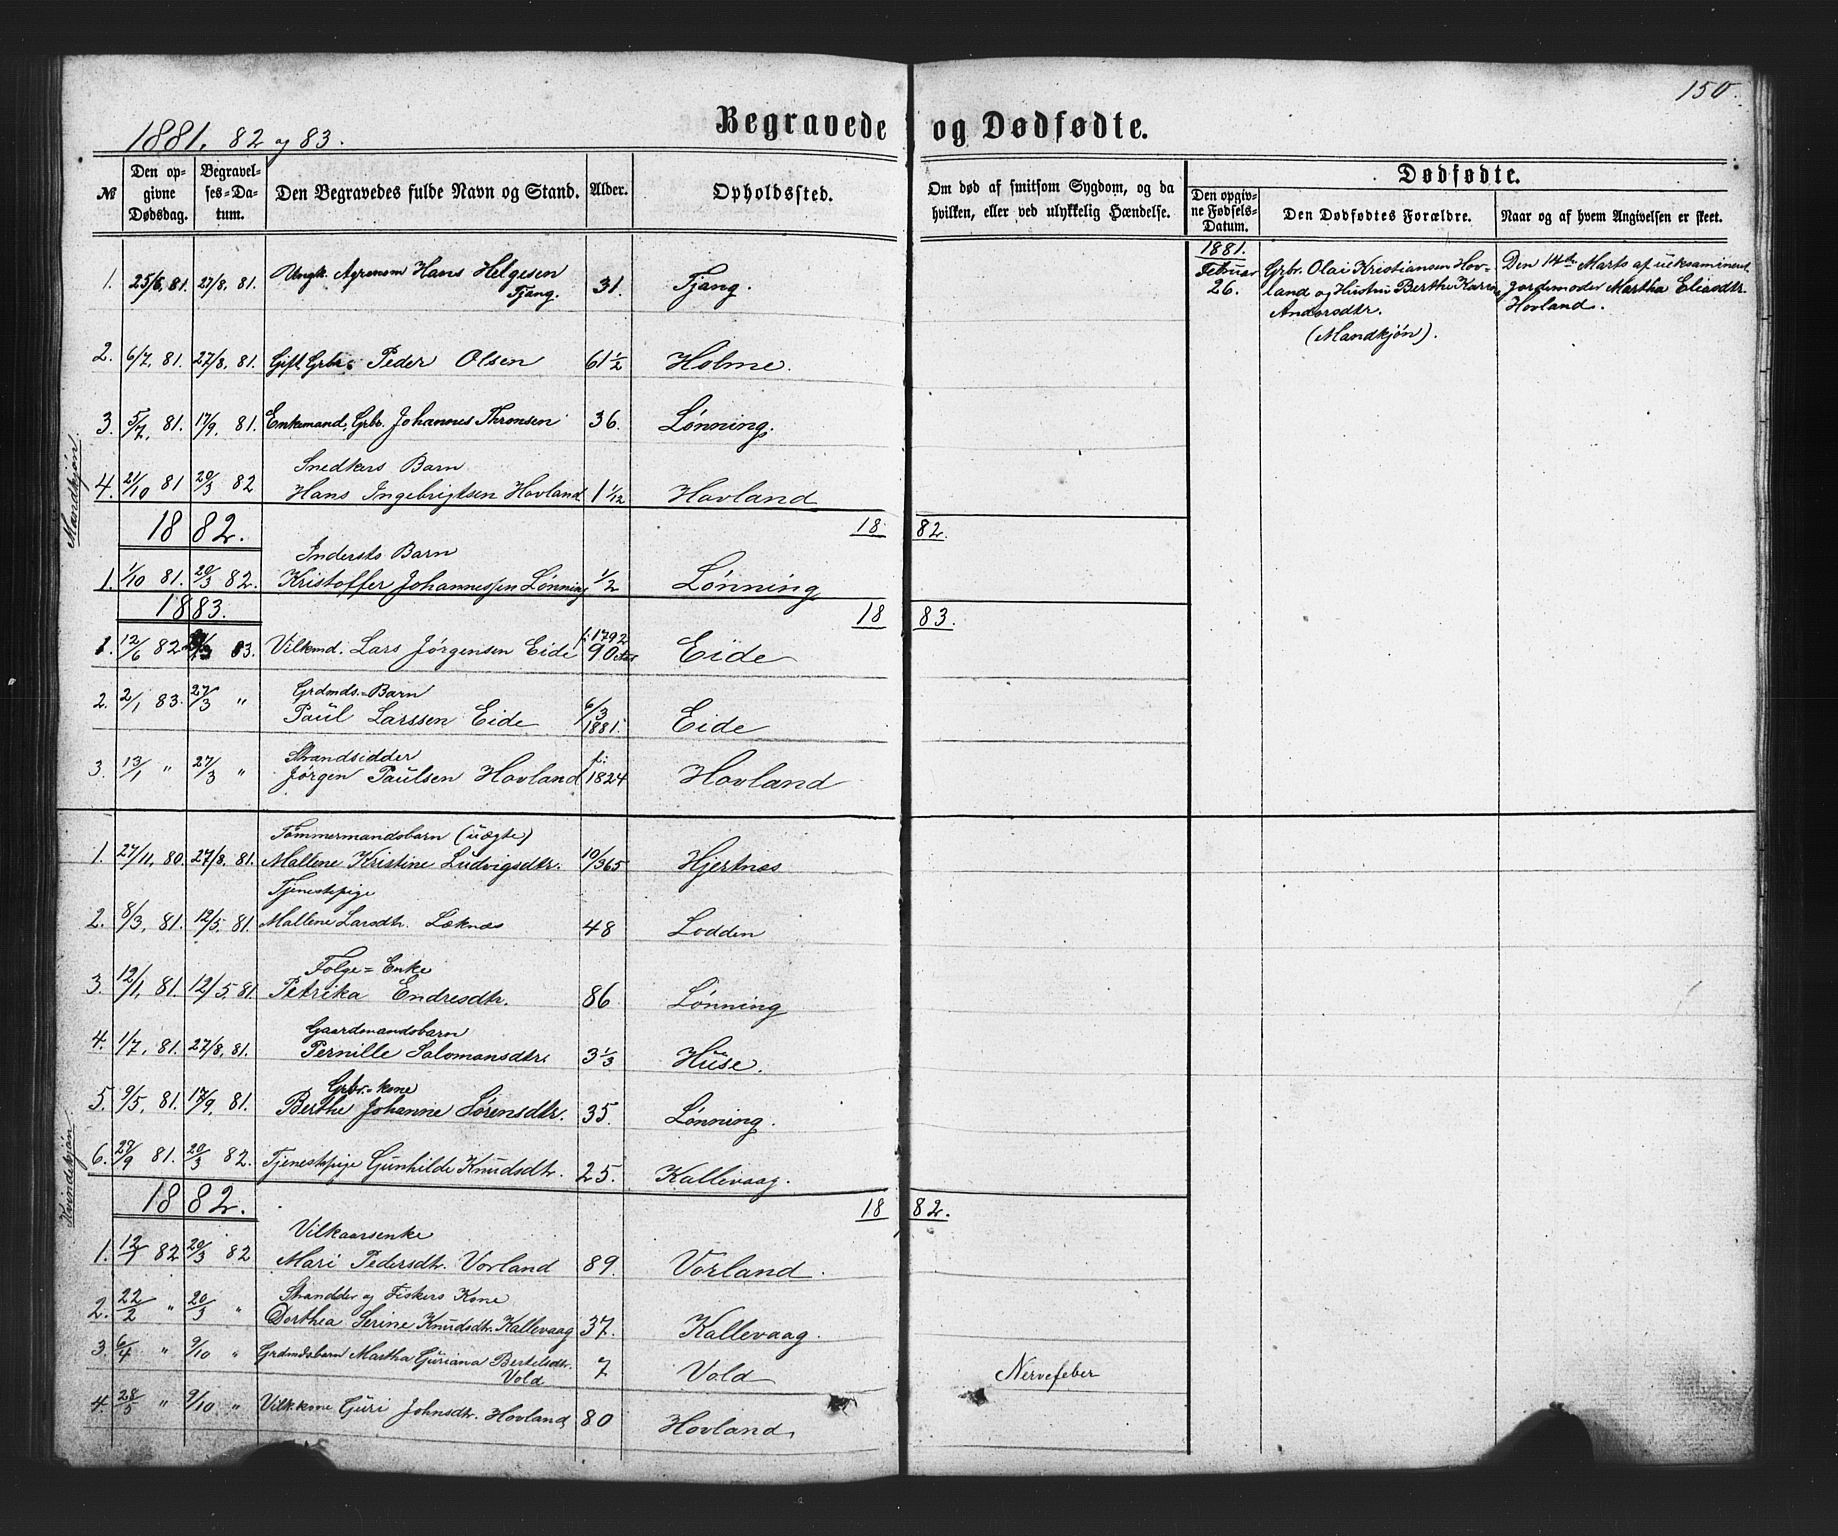 150.
1881, 82 og 83.
Begravede og Dødfødte.
№
Den opgivne Dødsdag.
Begravelses-Datum.
Den Begravedes fulde Navn og Stand.
Alder.
Opholdssted.
Om død af smitsom Sygdom, og da hvilken, eller ved ulykkelig Hændelse.
Dødfødte.
Den opgivne Fødsels-Datum.
Den Dødfødtes Forældre.
Naar og af hvem Angivelsen er skeet.
Mandkjøn.
1. 25/6, 81. 27/8, 81. Ungk. Agronom Hans Helgesen Tjang. 31. Tjang.
1881. Februar 26. Grbr. Olai Kristiansen Hovland og Hustru Berthe Karine Andorsdtr. (Mandkjøn).
Den 14de Marts af ueksamineret Jordemoder Martha Eliasdtr. Hovland.
2. 6/7, 81. 27/8, 81. Gift Grbr. Peder Olsen 61 1/2 Holme.
3. 5/7, 81. 17/9, 81. Enkemand, Grbr. Johannes Thronsen 36. Lønning.
4. 21/10 81 20/3 82 Snedkers Barn
Hans Ingebrigtsen Hovland 1 1/12 Hovland
1882. 1882.
1. 1/10 81. 20/3 82. Indersts Barn
Kristoffer Johannessen Lønning 1/2 Lønning
1883. 1883.
1. 12/6 82 83. Vilkmd. Lars Jørgensen Eide f. 1792 90 Eide
2. 2/1 83. 27/3 " Grdmds.-Barn
Paul Larssen Eide 6/3 1881. Eide
3. 13/1 " 27/3 " Strandsidder
Jørgen Paulsen Hovland f. 1824 Hovland
Kvindekjøn
1. 27/11, 80. 27/8, 81. Tømmermandsbarn (uægte)
Mallene Kristine Ludvigsdtr. 10/365 Hjertnæs
2. 8/3, 81. 12/5, 81. Tjenestepige
Mallene Larsdtr. Læknæs 48 Lodden
3. 12/1, 81. 12/5 81 Folge=Enke
Petrika Endresdtr. 86 Lønning
4. 1/7, 81. 27/8, 81. Gaardmandsbarn
Pernille Salomonsdtr. 3 1/3 Huse.
5. 9/5, 81. 17/9, 81. Grbr.=kone
Berthe Johanne Sørensdtr. 35. Lønning.
6. 27/9 81. 20/3 82. Tjenestepige Gunhilde Knudsdtr. 25. Kallevaag.
1882. 1882.
1. 12/1 82 20/3 82 Vilkaarsenke
Mari Pedersdtr. Vorland 89. Vorland.
2. 22/2 " 20/3 " Strandder og Fiskers Kone
Dorthea Serine Knudsdtr. Kallevaag 37. Kallevaag.
3. 6/4 " 9/10 " Grdmdsbarn Martha Guriana Bertelsdtr. Vold 7 Vold Nervefeber
4. 28/5 " 9/10 " Vilk.kone Guri Johnsdtr. Hovland 80 Hovland.